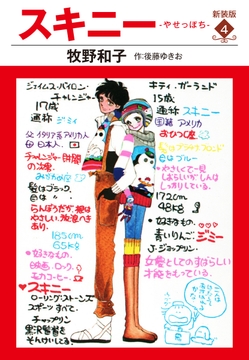 スキニー
-やせっぽち-
新装版
4
牧野和子
作:後藤ゆきお
ジェイムズ・バイロン・
チャレンジャー
17歳
通称 ジミー
父 イタリア系アメリカ人
母 日本人。
チャレンジャー財閥
の次男。
みずがめ座
髪はブラック、
目は
らんぼうだが、根は
やさしい。放浪へきあ
り。
185cm
65kg
好きなもの。
映画。ロック。
♥スキニー
ローリング・ストーンズ
スポーツ すべて。
チャップリン
黒沢監督を
そんけいしてる。
キティ・ガーランド
15歳
通称 スキニー
国籍 アメリカ
おひつじ座
目はブルー
やさしくて一見
よわいがしんは
しっかりしている。
172cm
48kg
好きなもの。
青いりんご。ジミー
J・ジョップリン。
女優としてのすばらしい
才能をもっている。